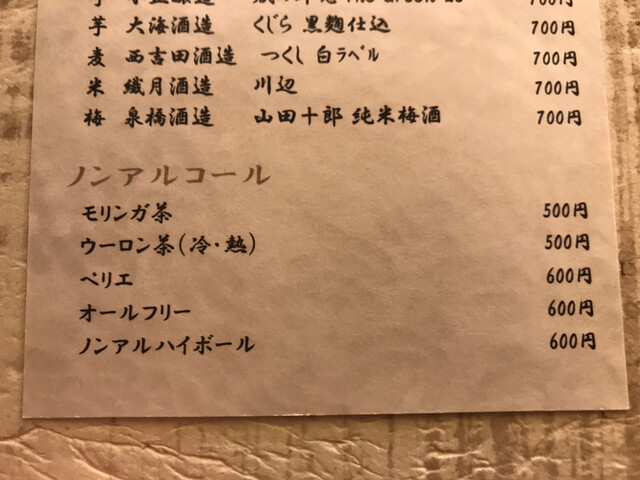 The Green 700円
芋 大海酒造 くじら 黒麹仕込 700円
麦 西吉田酒造 つくし 白ラベル 700円
米 繊月酒造 川辺 700円
梅 泉橋酒造 山田十郎 純米梅酒 700円
ノンアルコール
モリンガ茶 500円
ウーロン茶(冷・熱) 500円
ペリエ 600円
オールフリー 600円
ノンアルハイボール 600円